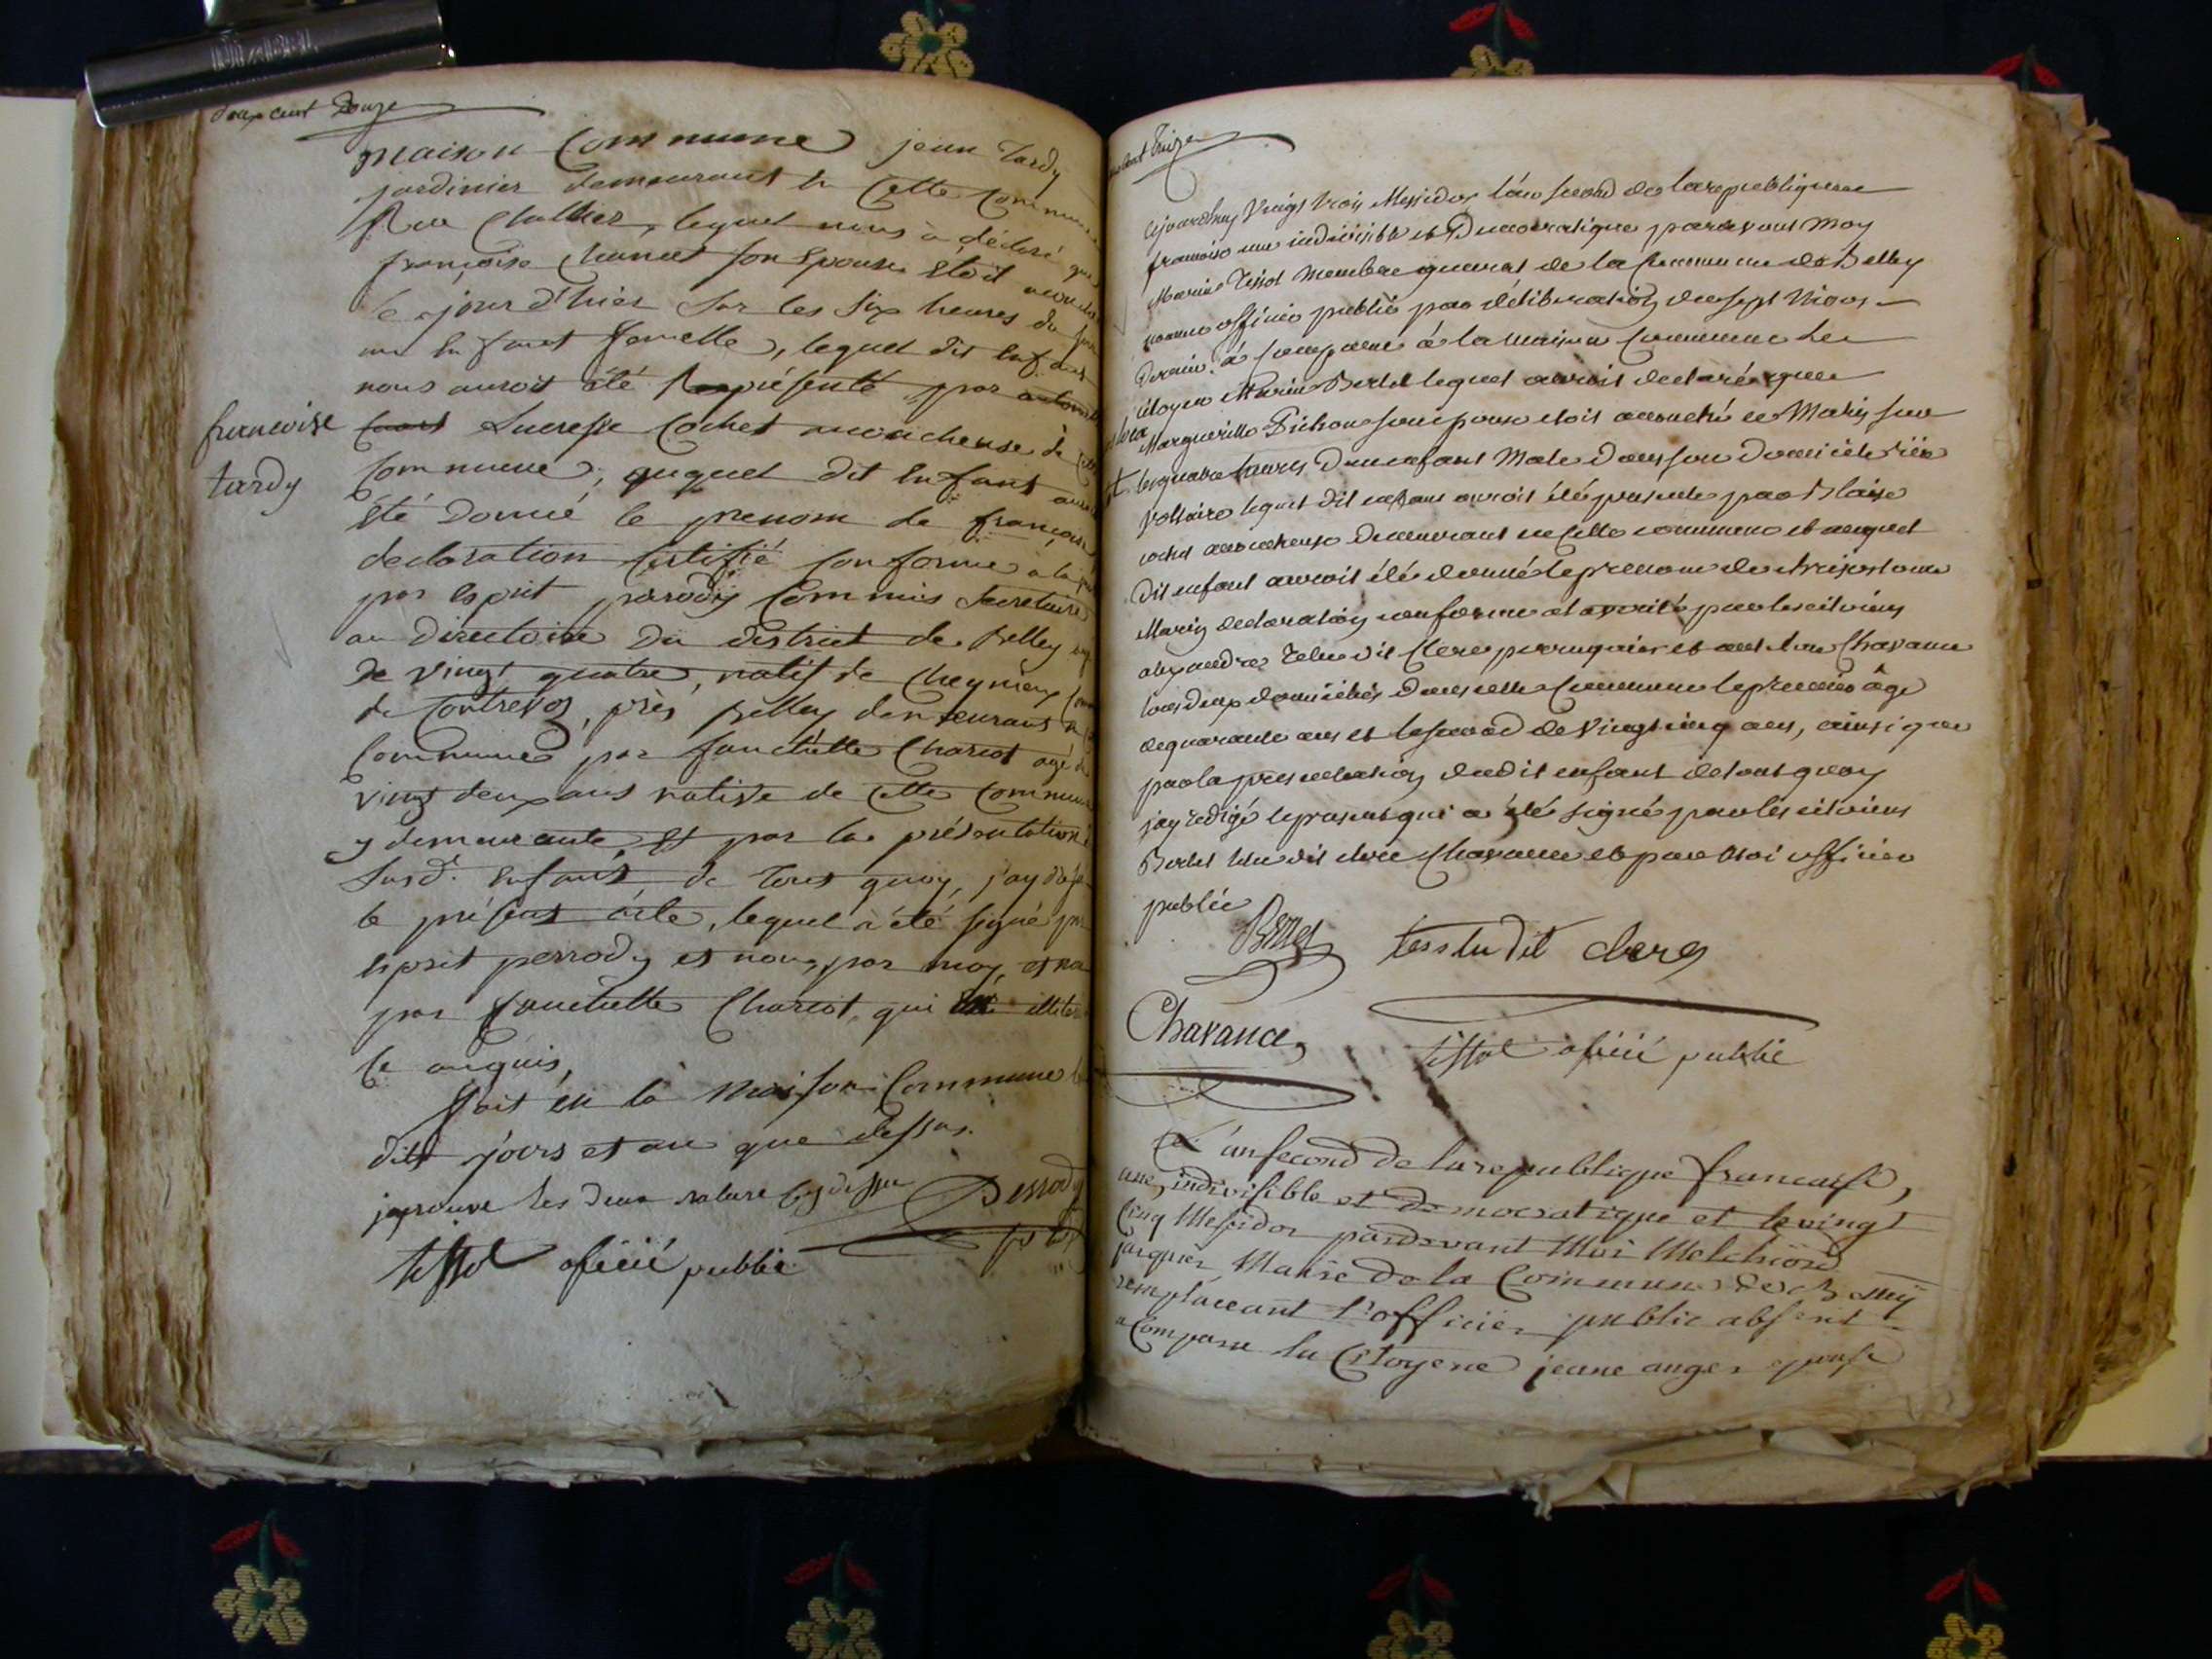 deux cent douze
maison Commune jean tardy
jardinier demeurant en Cette Commune
Rue Challier, lequel nous à déclaré que
françoise Chanet son Epouse étoit
le jour d'hier sur les six heures du soir
un Enfant femelle, lequel dit Enfant
nous auroit été Représenté par
Lucresse Cochet accoucheuse de
françoise
tardy
Commune, auquel dit Enfant
été donné le prenom de françoise
declaration Certifié Conforme à la
par Esprit perrody Commis Secretaire
au directoire du district de Belley
de vingt quatre, natif de Cheynieux
de Contrevoz, près Belley demeurant
Commune, par fanchette Chariot agé de
vingt deux ans native de Cette Commune
y demeurante, et par la présentation
Susd. Enfant, de tout quoy, j'ay
le présent acte, lequel à été signé par
Esprit perrody et nous, par moy, et non
par fanchette Chariot, qui
Ce enquis,
fait en la Maison Commune
dits jours et an que dessus.
japrouve les deux rature Cy dessu
Perrody
tissot oficié public
cent treize
cejourdhuy Vingt trois Messidor l'an second de la republique
francaise une indivisible et Democratique pardevant moy
Marin Tissot Membre du de la Commune de Belley
nomme officier public par délibération du sept
dernier à comparu à la maison Commune Le
citoyen Marin Bertet lequel auroit declaré que
Margueritte Pichon son epouse etoit accouché ce Matin sur
les quatre heures D'un enfant Male Dans son Domicile rue
Voltaire lequel Dit enfant auroit été presenté par
cochet accoucheuse Demeurant en Cette commune et auquel
Dit enfant auroit été donné le prenom de
Marin declaration conforme à la verité par les citoiens
alexandre Testu dit Clere perruquier et Chavance
tous deux domiciliés Dans cette Commune le premier âgé
de quarante ans et le second de Vingt cinq ans, ainsi que
par la presentation dudit enfant de tout quoy
jay redigé le present qui a été signé par les citoiens
Bertet testu dit clere Chavance et par Moi officier
public
Bertet testu dit clere
Chavance
tissot oficié public
L'an second de la republique francaise,
une, indivisible et democratique et le vingt
Cinq Messidor pardevant Moi Melchior
jarquier Maire de la Commune de Belley
remplaceant l'officier public absent
a Comparu la Citoyene jeane anger epouse